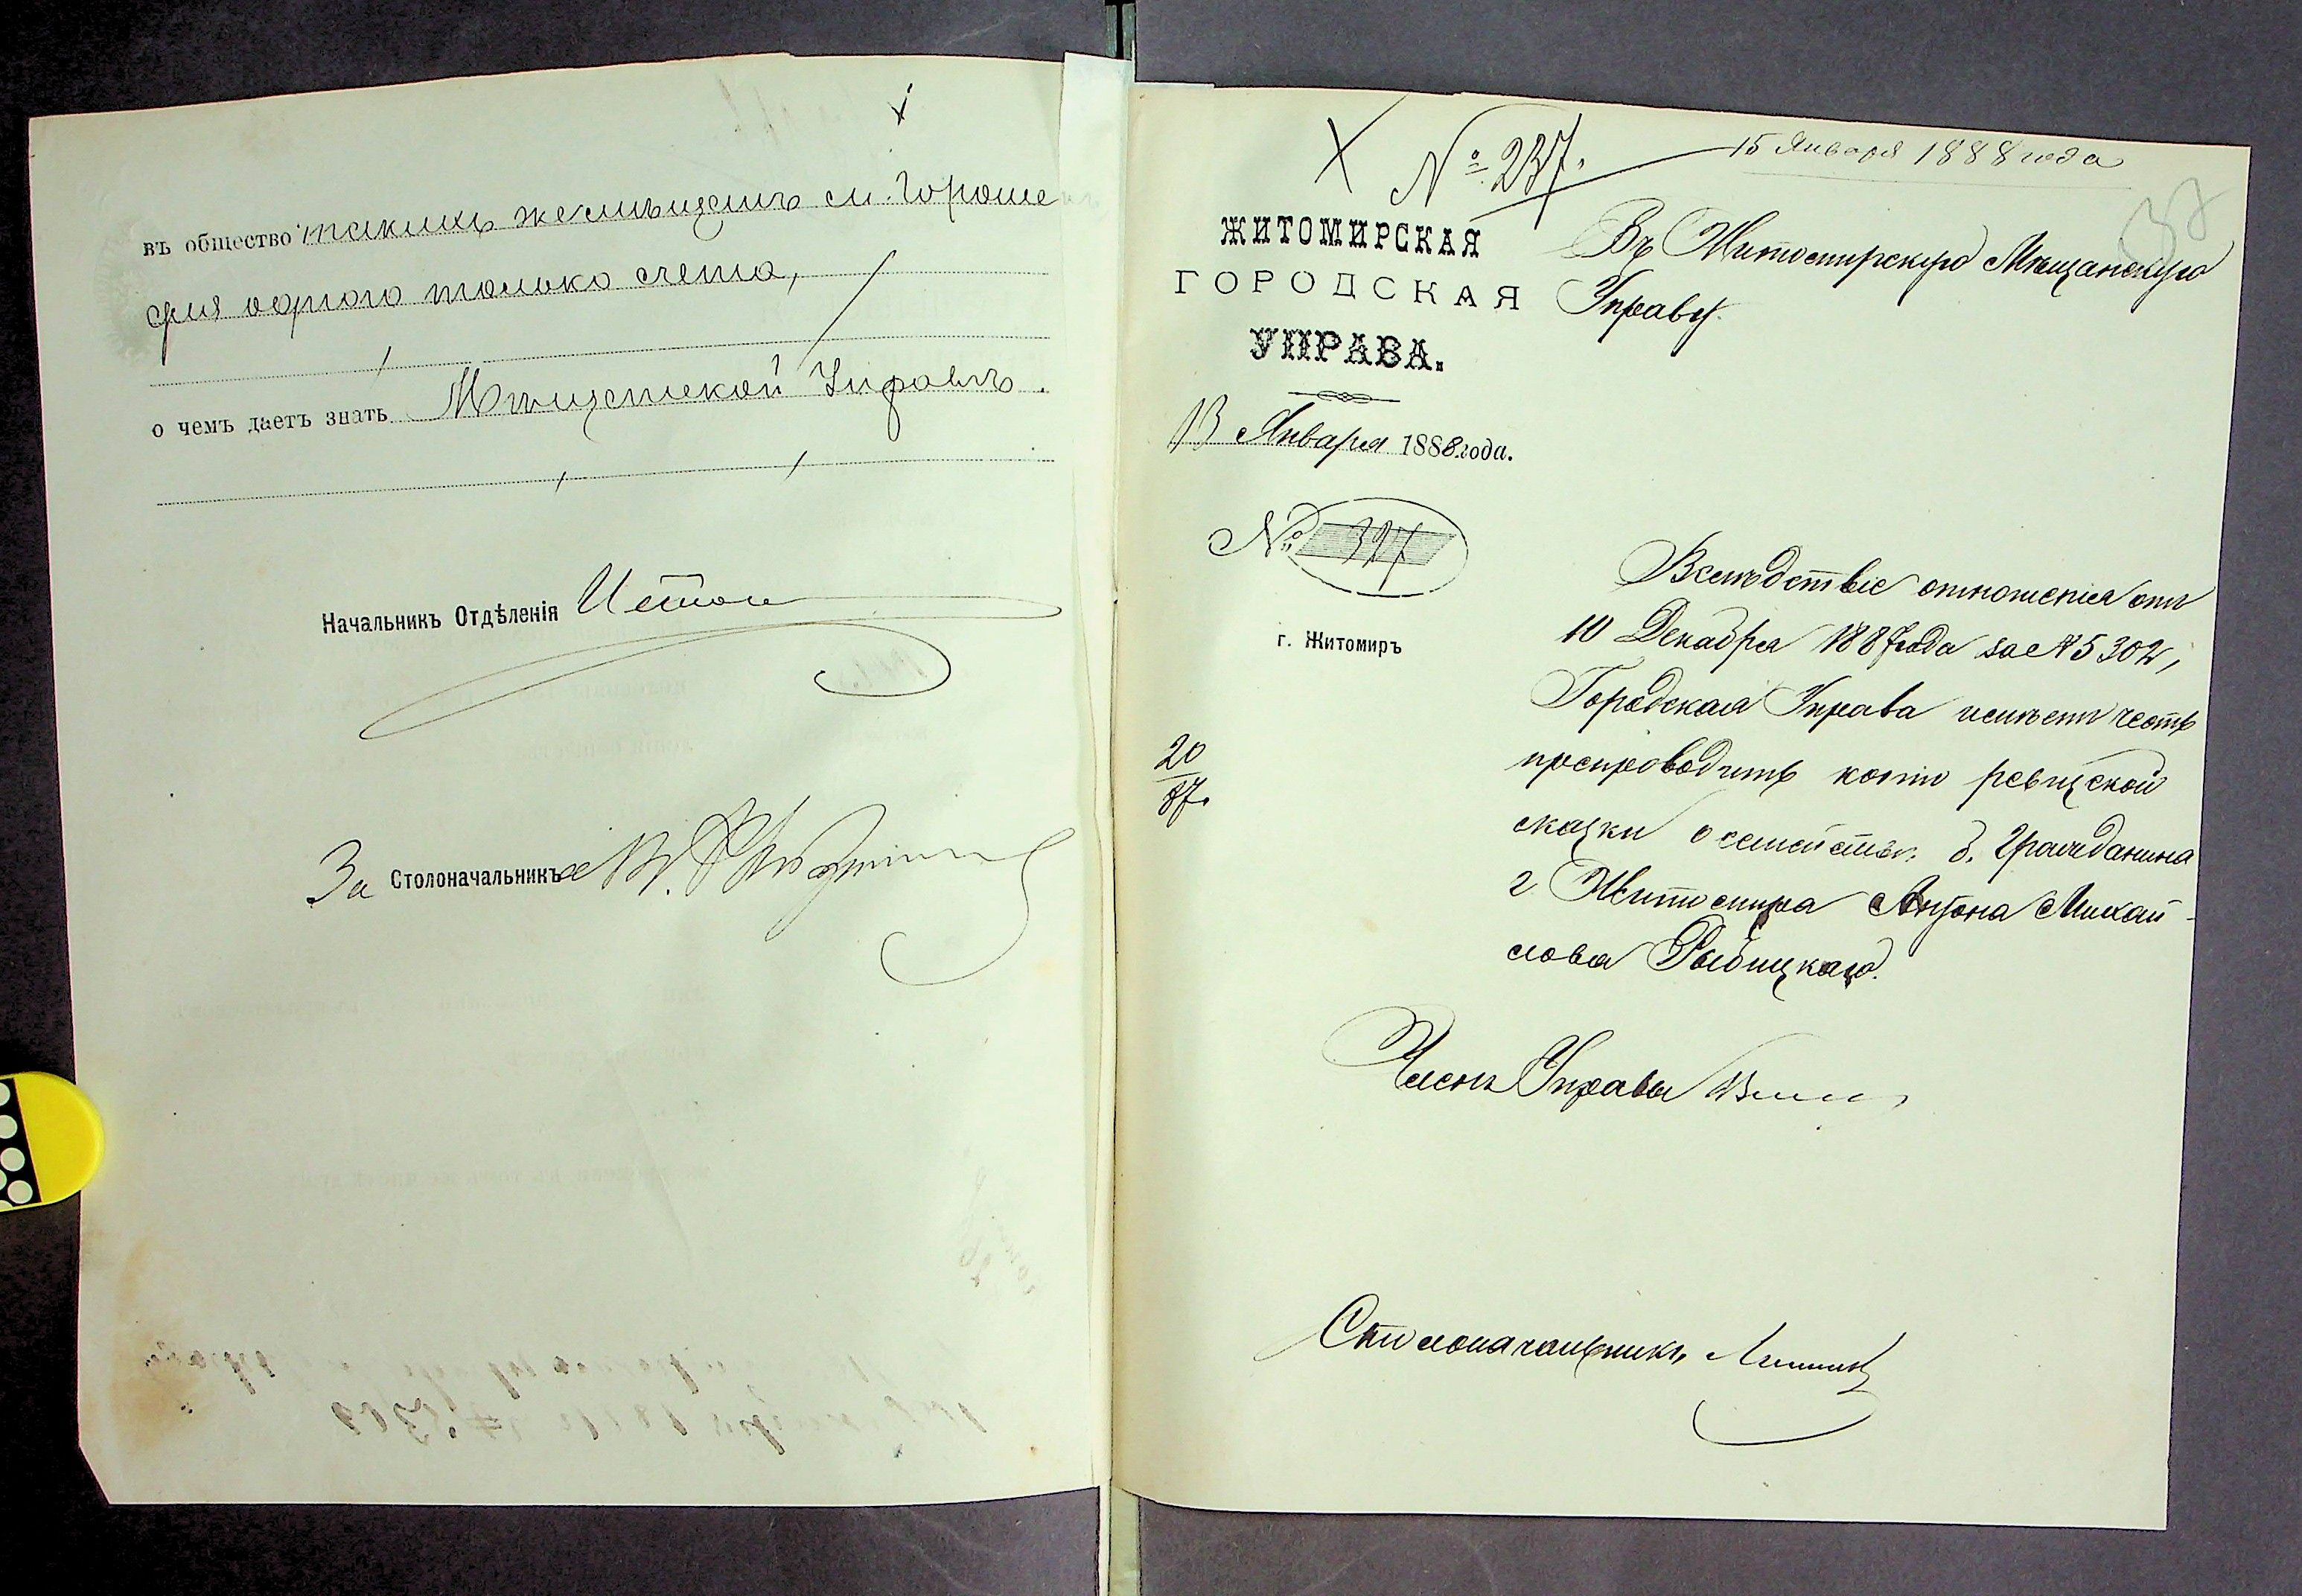 въ общество такихъ же мѣщанъ м. Горошекъ
для одного только счета,
о чемъ даетъ знать Мѣщанской Управѣ.
Начальникъ Отдѣленія
За Столоначальника
№ 237.
15 Января 1888 года
37
ЖИТОМИРСКАЯ
ГОРОДСКАЯ
УПРАВА.
13 Января 1888 года.
№ 327
г. Житомиръ
20
87.
Въ Житомирскую Мѣщанскую
Управу.
Вслѣдствіе отношенія отъ
10 Декабря 1887 года за № 5302,
Городская Управа имѣетъ честь
препроводить копію ревизской
сказки о семействѣ б. гражданина
г. Житомира Антона Михай-
лова Рыбицкаго.
Членъ Управы
Столоначальникъ